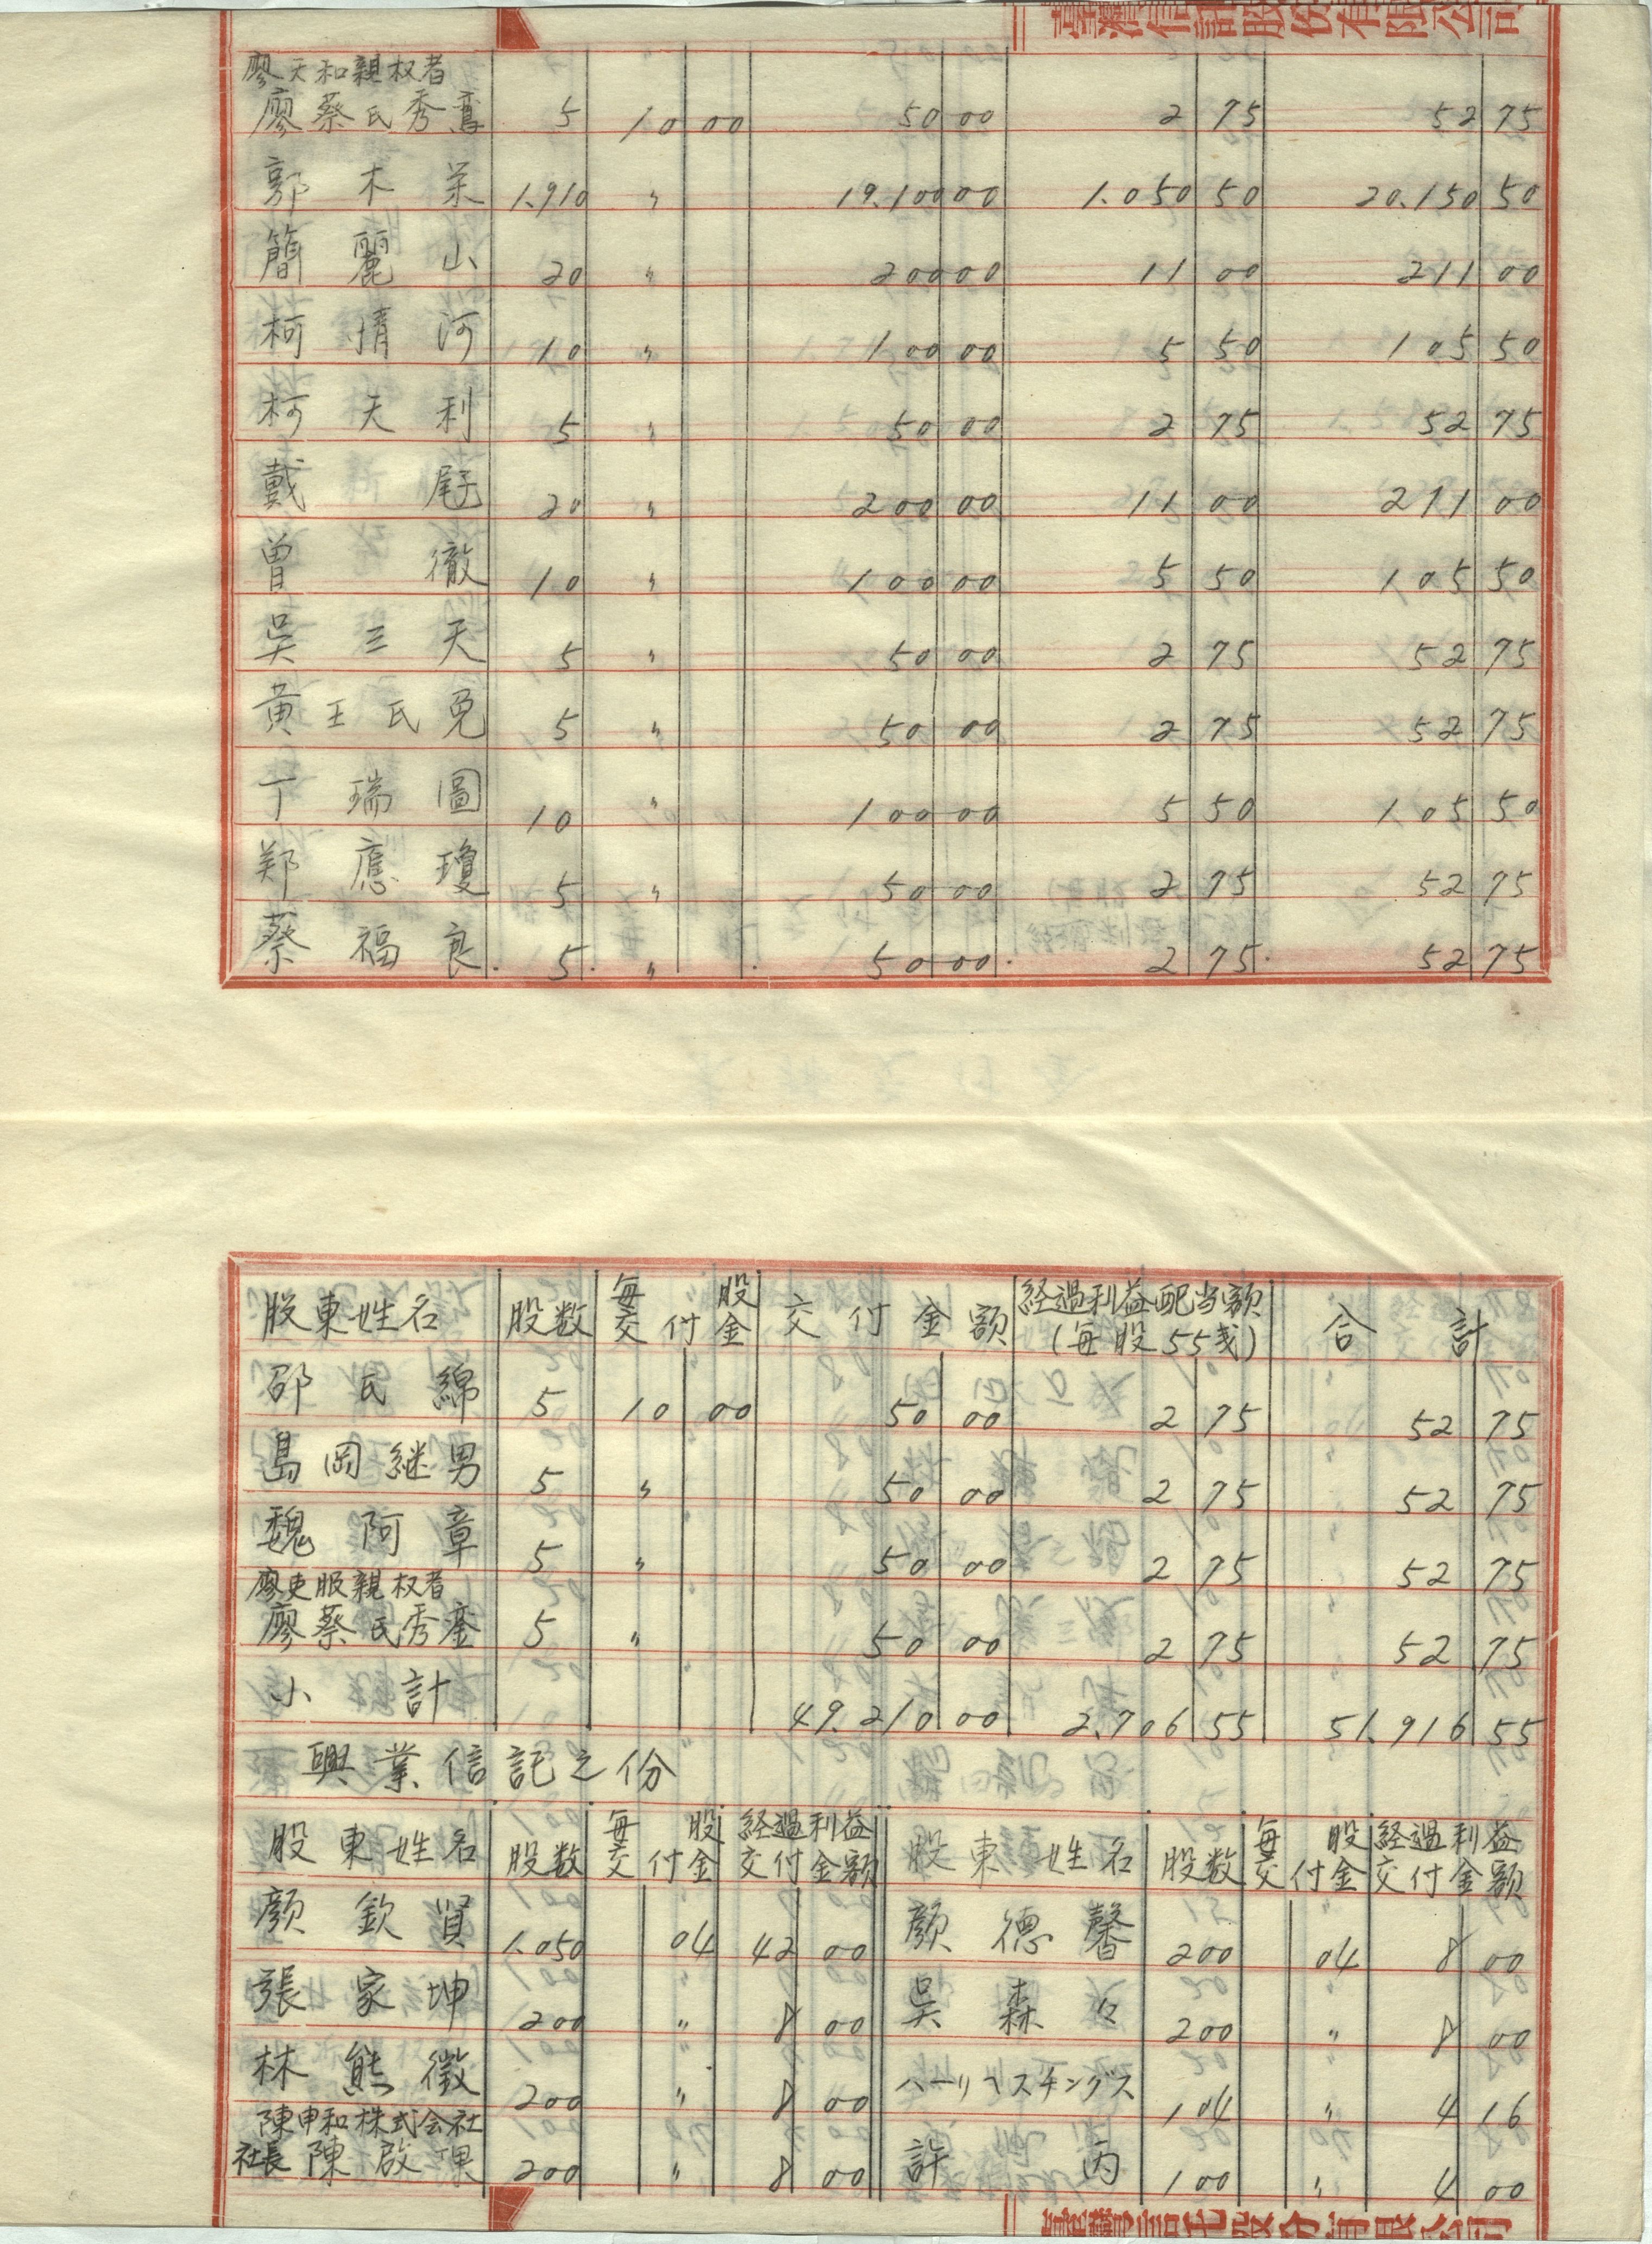 臺灣信託股份有限公司
廖天和親权者
廖蔡氏秀鸞 5 10 00 50 00 2 75 52 75
郭木荣 1.910 〃 19.100 00 1.050 50 20.150 50
簡麗山 20 〃 200 00 11 00 211 00
柯情河 10 〃 100 00 5 50 105 50
柯天利 5 〃 50 00 2 75 52 75
戴尾 20 〃 200 00 11 00 211 00
曾徹 10 〃 100 00 5 50 105 50
吳三天 5 〃 50 00 2 75 52 75
黄王氏免 5 〃 50 00 2 75 52 75
丁瑞圖 10 〃 100 00 5 50 105 50
郑應瓊 5 〃 50 00 2 75 52 75
蔡福良 5 〃 50 00 2 75 52 75
股東姓名 股数 每股交付金 交付金額 経過利益配当額(每股55戋) 合計
邵氏綿 5 10 00 50 00 2 75 52 75
島岡継男 5 〃 50 00 2 75 52 75
魏阿章 5 〃 50 00 2 75 52 75
廖吏服親权者
廖蔡氏秀銮 5 〃 50 00 2 75 52 75
小計 49.210 00 2.706 55 51.916 55
興業信託之份
股東姓名 股数 每股交付金 経過利益交付金額 股東姓名 股数 每股交付金 経過利益交付金額
顏欽賢 1.050 04 42 00 顏德馨 200 04 8 00
張家坤 200 〃 8 00 吳森々 200 〃 8 00
林熊徵 200 〃 8 00 ハーリヘスチングス 104 〃 4 16
陳中和株式会社
社長 陳啟 200 〃 8 00 許丙 100 〃 4 00
臺灣信託股份有限公司